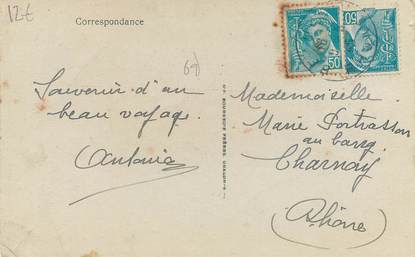 12€
Correspondance
69
Souvenir d'un
beau voyage.
Antonia
Mademoiselle
Marie Portrasson
au bourg
Charnay
(Rhône)
50
50